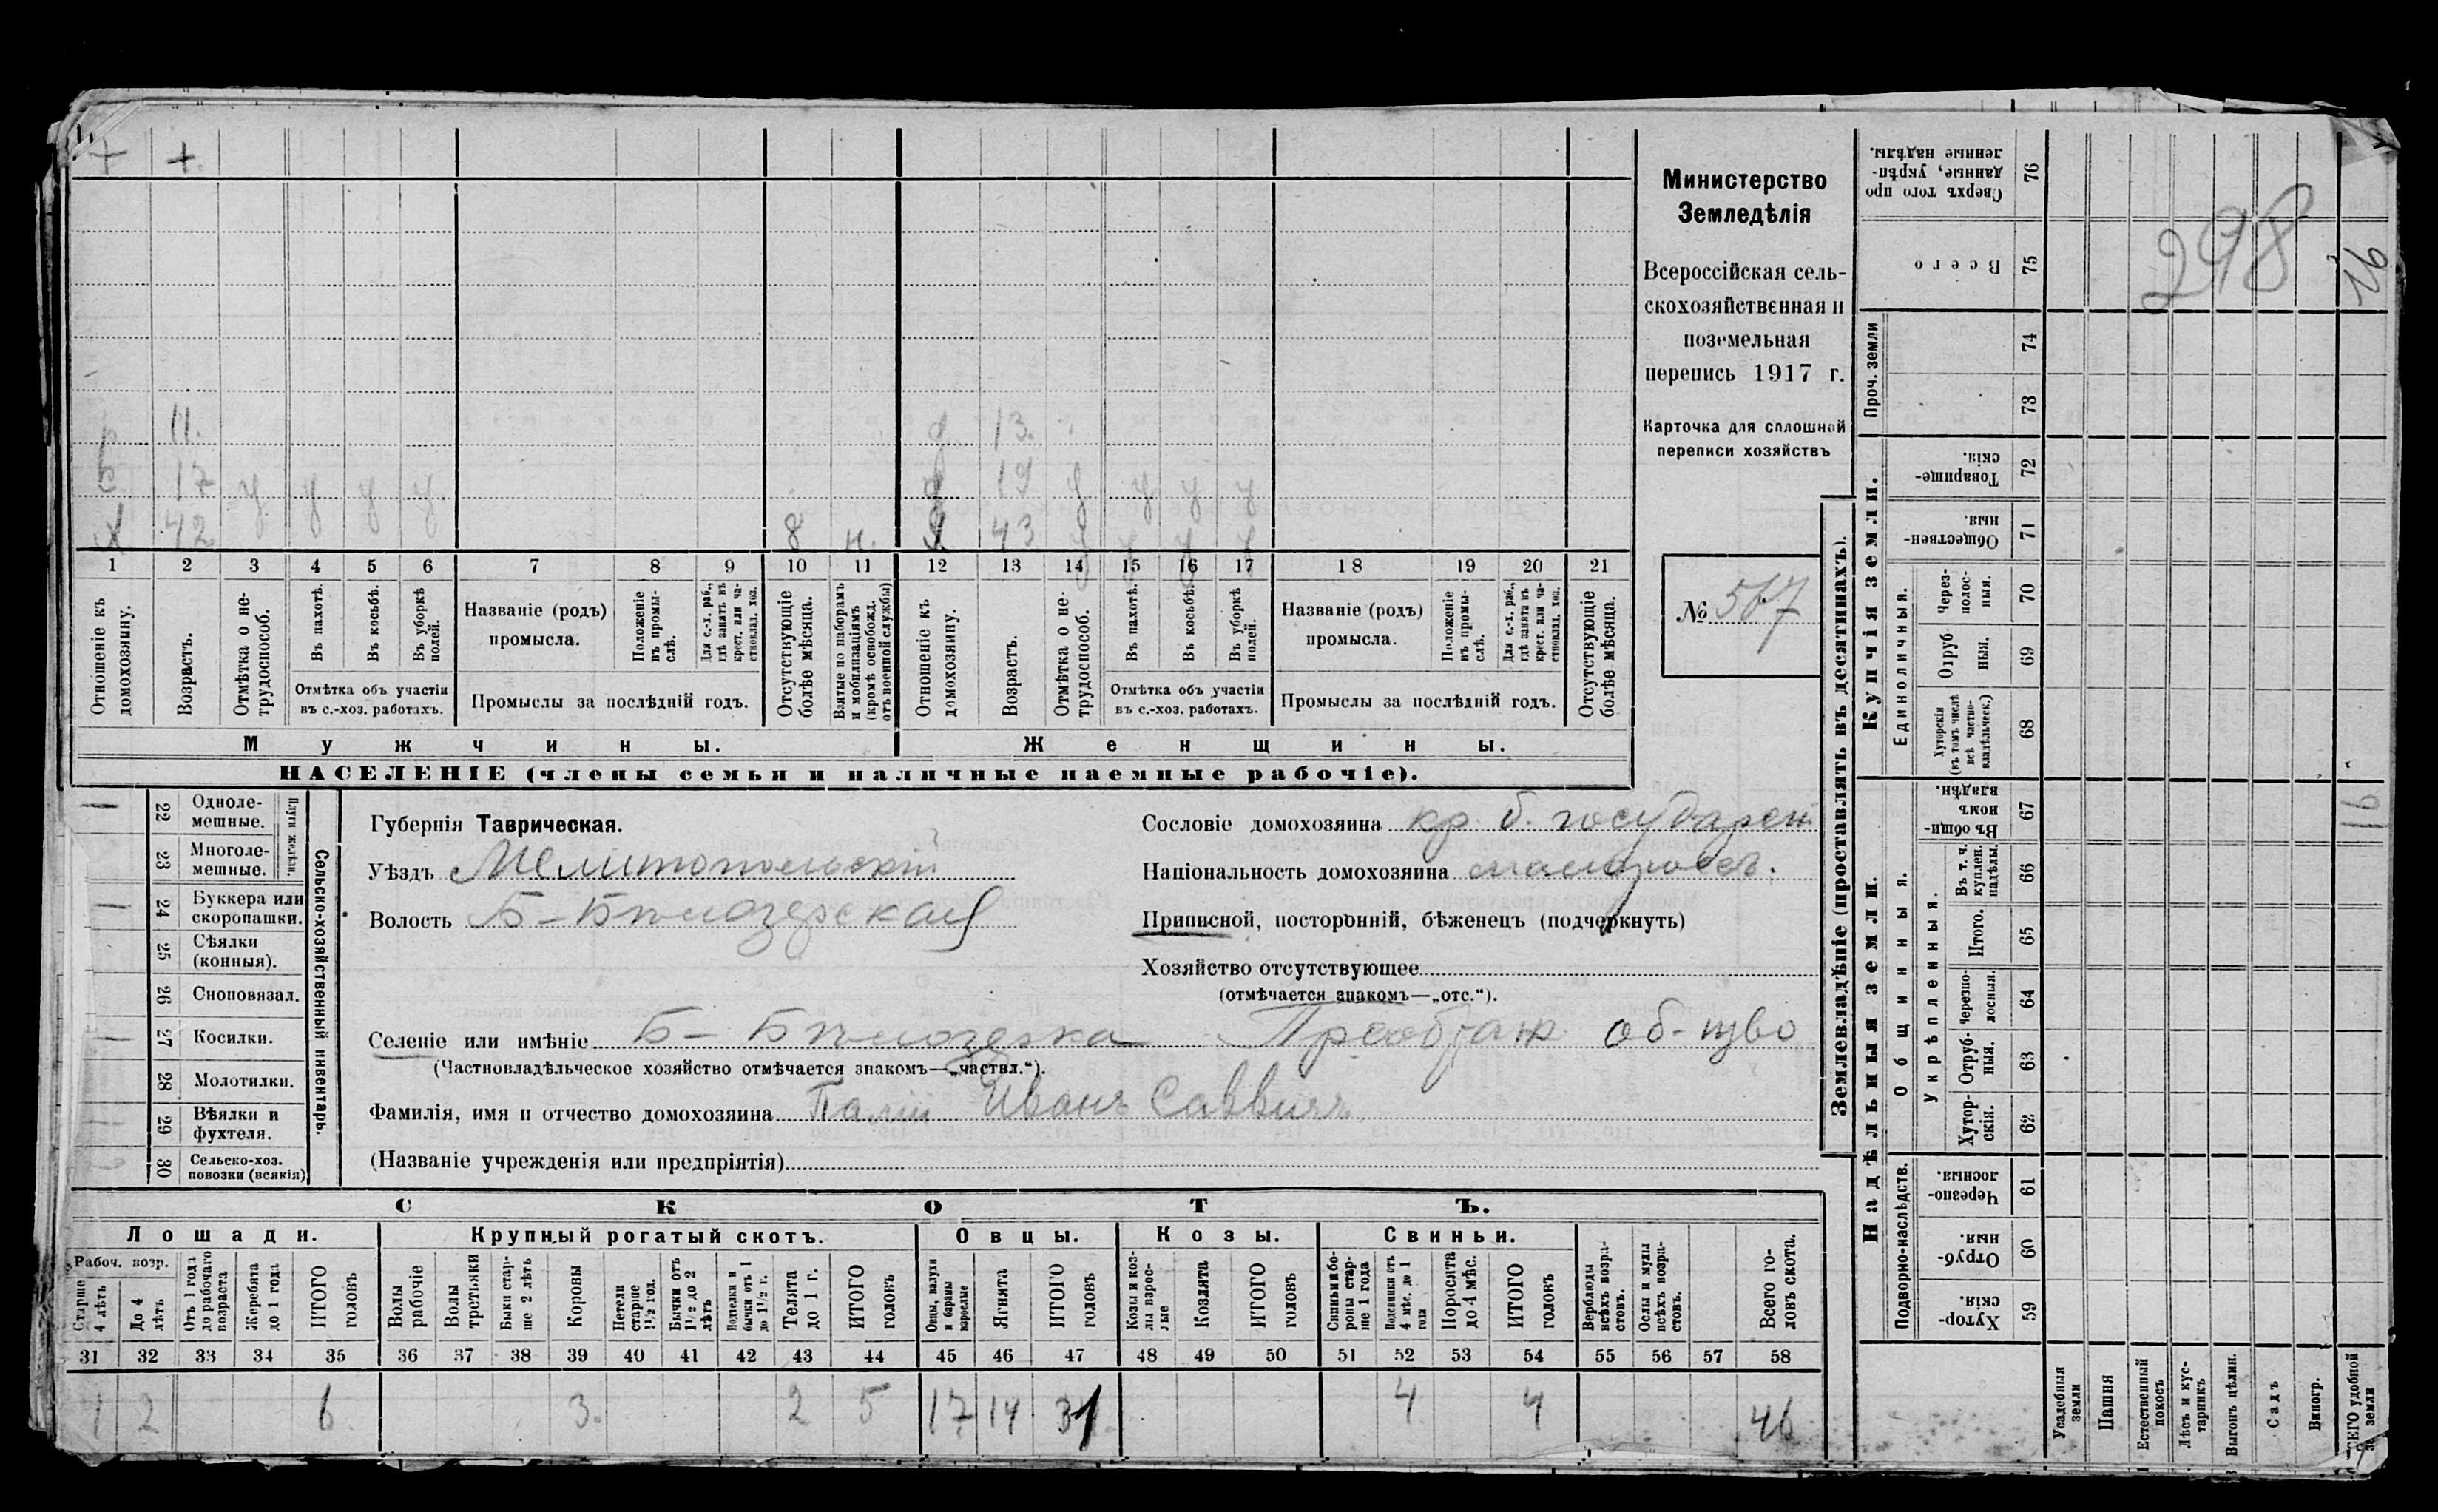 + +
р 11. д 13.
с 17 у у у у д 19 у у у у
х 42 8 н. х 43 у у у у
1 2 3 4 5 6 7 8 9 10 11 12 13 14 15 16 17 18 19 20 21
Отношеніе къ домохозяину.
Возрастъ.
Отмѣтка о не-трудоспособ.
Въ пахотѣ.
Въ косьбѣ.
Въ уборкѣ полей.
Отмѣтка объ участіи въ с.-хоз. работахъ.
Названіе (родъ) промысла.
Положеніе въ промы-слѣ.
Для с.-х. раб., гдѣ занятъ въ крест. или ча-стновлад. хоз.
Промыслы за послѣдній годъ.
Отсутствующіе болѣе мѣсяца.
Взятые по наборамъ и мобилизаціямъ (кромѣ освобожд. отъ военной службы)
Отношеніе къ домохозяину.
Возрастъ.
Отмѣтка о не-трудоспособ.
Въ пахотѣ.
Въ косьбѣ.
Въ уборкѣ полей.
Отмѣтка объ участіи въ с.-хоз. работахъ.
Названіе (родъ) промысла.
Положеніе въ промы-слѣ.
Для с.-х. раб., гдѣ занята въ крест. или ча-стновлад. хоз.
Промыслы за послѣдній годъ.
Отсутствующіе болѣе мѣсяца.
Мужчины. Женщины.
НАСЕЛЕНІЕ (члены семьи и наличные наемные рабочіе).
Министерство
Земледѣлія
Всероссійская сель-
скохозяйственная и
поземельная
перепись 1917 г.
Карточка для сплошной
переписи хозяйствъ
№ 567
22 Одноле-мешные.
23 Многоле-мешные.
Плуги желѣзн.
24 Буккера или скоропашки.
25 Сѣялки (конныя).
26 Сноповязал.
27 Косилки.
28 Молотилки.
29 Вѣялки и фухтеля.
30 Сельско-хоз. повозки (всякія)
Сельско-хозяйственный инвентарь.
Губернія Таврическая.
Уѣздъ Мелитопольскій
Волость Б-Бѣлозерская
Сословіе домохозяина кр. б. государст
Національность домохозяина малороссъ.
Приписной, посторонній, бѣженецъ (подчеркнуть)
Хозяйство отсутствующее
(отмѣчается знакомъ—„отс.“).
Селеніе или имѣніе Б-Бѣлозерка Преображ об-щво
(Частновладѣльческое хозяйство отмѣчается знакомъ—„частвл.“).
Фамилія, имя и отчество домохозяина Палій Иванъ Саввичъ
(Названіе учрежденія или предпріятія)
СКОТЪ.
Лошади. Крупный рогатый скотъ. Овцы. Козы. Свиньи.
Рабоч. возр.
Старше 4 лѣтъ
До 4 лѣтъ
Отъ 1 года до рабочаго возраста
Жеребята до 1 года
ИТОГО головъ
Волы рабочіе
Волы третьяки
Быки стар-ше 2 лѣтъ
Коровы
Нетели старше 1½ год.
Бычки отъ 1½ до 2 лѣтъ
Телки и бычки отъ 1 до 1½ г.
Телята до 1 г.
ИТОГО головъ
Овцы, валухи и бараны взрослые
Ягнята
ИТОГО головъ
Козы и коз-лы взрос-лые
Козлята
ИТОГО головъ
Свиньи и бо-ровы стар-ше 1 года
Подсвинки отъ 4 мѣс. до 1 года
Поросята до 4 мѣс.
ИТОГО головъ
Верблюды всѣхъ возра-стовъ.
Ослы и мулы всѣхъ возра-стовъ.
Всего го-ловъ скота.
31 32 33 34 35 36 37 38 39 40 41 42 43 44 45 46 47 48 49 50 51 52 53 54 55 56 57 58
1 2 6 3. 2 5 17 14 31 4 4 46
Землевладѣніе (проставлять въ десятинахъ).
Купчія земли.
Надѣльныя земли.
Сверхъ того про-данные, укрѣп-ленные надѣлы. 76
Всего 75
Проч. земли 74 73
Товарище-скія. 72
Обществен-ныя. 71
Единоличныя.
Через-полос-ныя. 70
Отруб-ныя. 69
Хуторскія (въ томъ числѣ всѣ частно-владѣльческ.) 68
Въ общи-номъ владѣн. 67
Общинныя.
Укрѣпленныя.
Въ т. ч. куплен. надѣлы. 66
Итого. 65
Черезпо-лосныя. 64
Отруб-ныя. 63
Хутор-скія. 62
Подворно-наслѣдств.
Черезпо-лосныя. 61
Отруб-ныя. 60
Хутор-скія. 59
Усадебныя земли
Пашня
Естественный покосъ
Лѣсъ и кус-тарникъ
Выгонъ цѣлин.
Садъ
Виногр.
ВСЕГО удобной земли
298
16
16